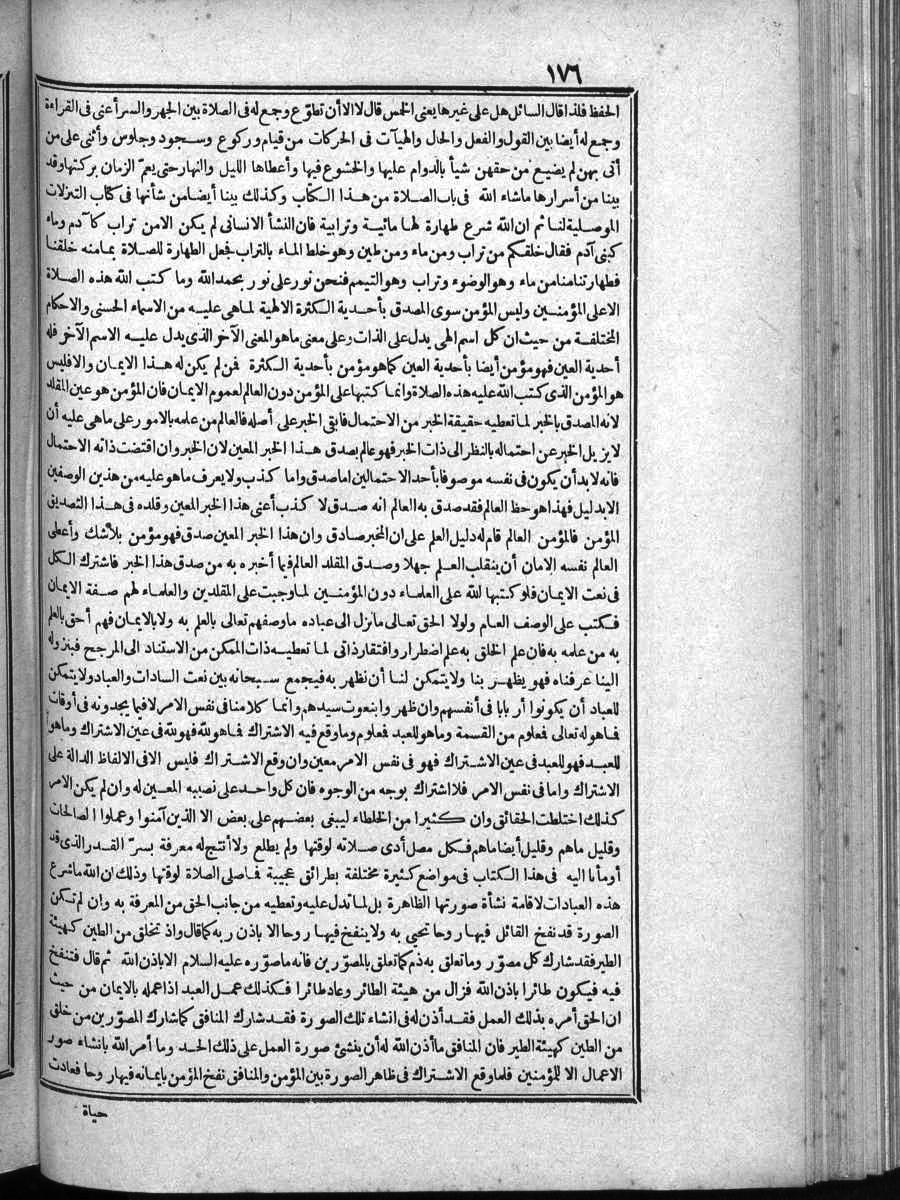 ١٧٦
الحفظ فلذا قال السائل هل على غيرها يعنى الخمس قال لا الا أن تطوّع وجمع له فى الصلاة بين الجهر والسر أعنى فى القراءة
وجمع له أيضا بين القول والفعل والحال والهيآت فى الحركات من قيام وركوع وسجود وجلوس وأثنى على من
أتى بهن لم يضيع من حقهن شيأ بالدوام عليها والخشوع فيها وأعطاها الليل والنهار حتى يعمّ الزمان بركتها وقد
بينا من أسرارها ماشاء الله فى باب الصلاة من هذا الكتاب وكذلك بينا أيضا من شأنها فى كتاب التنزلات
الموصلية لنا ثم ان الله شرع طهارة لها مائية وترابية فان النشأ الانسانى لم يكن الا من تراب كآدم وماء
كبنى آدم فقال خلقكم من تراب ومن ماء ومن طين وهو خلط الماء بالتراب فجعل الطهارة للصلاة بما منه خلقنا
فطهارتنا منا من ماء وهو الوضوء وتراب وهو التيمم فنحن نور على نور بحمد الله وما كتب الله هذه الصلاة
الا على المؤمنين وليس المؤمن سوى المصدق بأحدية الكثرة الالهية لما هى عليه من الاسماء الحسنى والاحكام
المختلفة من حيث ان كل اسم الهى يدل على الذات وعلى معنى ما هو المعنى الآخر الذى يدل عليه الاسم الآخر فله
أحدية العين فهو مؤمن أيضا بأحدية العين كما هو مؤمن بأحدية الكثرة فمن لم يكن له هذا الايمان والا فليس
هو المؤمن الذى كتب الله عليه هذه الصلاة وانما كتبها على المؤمن دون العالم لعموم الايمان فان المؤمن هو عين المقلد
لانه المصدق بالخبر لما تعطيه حقيقة الخبر من الاحتمال فابقى الخبر على أصله فالعالم من علمه بالامور على ماهى عليه أن
لايزيل الخبر عن احتماله بالنظر الى ذات الخبر فهو عالم بصدق هذا الخبر المعين لان الخبر وان اقتضت ذاته الاحتمال
فانه لابد أن يكون فى نفسه موصوفا بأحد الاحتمالين اما صدق واما كذب ولا يعرف ما هو عليه من هذين الوصفين
الا بدليل فهذا هو حظ العالم فقد صدق به العالم انه صدق لا كذب أعنى هذا الخبر المعين وقلده فى هذا التصديق
المؤمن فالمؤمن العالم قام له دليل العلم على ان المخبر صادق وان هذا الخبر المعين صدق فهو مؤمن بلا شك وأعطى
العالم نفسه الامان أن ينقلب العلم جهلا وصدق المقلد العالم فيما أخبره به من صدق هذا الخبر فاشترك الكل
فى نعت الايمان فلو كتبها الله على العلماء دون المؤمنين لما وجبت على المقلدين والعلماء لهم صفة الايمان
فكتب على الوصف العام ولولا الحق تعالى ما نزل الى عباده ما وصفهم تعالى بالعلم به ولا بالايمان فهم أحق بالعلم
به من علمه به فان علم الخلق به علم اضطرار وافتقار ذاتى لما تعطيه ذات الممكن من الاستناد الى المرجح فبنزوله
الينا عرفناه فهو يظهر بنا ولا يتمكن لنا أن نظهر به فيجمع سبحانه بين نعت السادات والعباد ولا يتمكن
للعباد أن يكونوا أربابا فى أنفسهم وان ظهروا بنعوت سيدهم وانما كلامنا فى نفس الامر لا فيما يجدونه فى أوقات
فما هو له تعالى فمعلوم من القسمة وما هو للعبد فمعلوم وما وقع فيه الاشتراك فما هو لله فهو لله فى عين الاشتراك وما هو
للعبد فهو للعبد فى عين الاشتراك فهو فى نفس الامر معين وان وقع الاشتراك فليس الا فى الالفاظ الدالة على
الاشتراك واما فى نفس الامر فلا اشتراك بوجه من الوجوه فان كل واحد على نصيبه المعين له وان لم يكن الامر
كذلك اختلطت الحقائق وان كثيرا من الخلطاء ليبغى بعضهم على بعض الا الذين آمنوا وعملوا الصالحات
وقليل ماهم وقليل أيضا ماهم فكل مصل أدى صلاته لوقتها ولم يطلع ولا أنتج له معرفة بسرّ القدر الذى قد
أومأنا اليه فى هذا الكتاب فى مواضع كثيرة مختلفة بطرائق عجيبة فما صلى الصلاة لوقتها وذلك ان الله ما شرع
هذه العبادات لاقامة نشأة صورتها الظاهرة بل لما تدل عليه وتعطيه من جانب الحق من المعرفة به وان لم تكن
الصورة قد نفخ القائل فيها روحا تحيى به ولا ينفخ فيها روحا الا باذن ربه كما قال واذ تخلق من الطين كهيئة
الطير فقد شارك كل مصوّر وما تعلق به ذم كما تعلق بالمصوّرين فانه ما صوّره عليه السلام الا باذن الله ثم قال فتنفخ
فيه فيكون طائرا باذن الله فزال من هيئة الطائر وعاد طائرا فكذلك عمل العبد اذا عمله بالايمان من حيث
ان الحق أمره بذلك العمل فقد أذن له فى انشاء تلك الصورة فقد شارك المنافق كما شارك المصوّرين من خلق
من الطين كهيئة الطير فان المنافق ما أذن الله له أن ينشئ صورة العمل على ذلك الحد وما أمر الله بانشاء صور
الاعمال الا للمؤمنين فلما وقع الاشتراك فى ظاهر الصورة بين المؤمن والمنافق نفخ المؤمن بايمانه فيها روحا فعادت
حياة